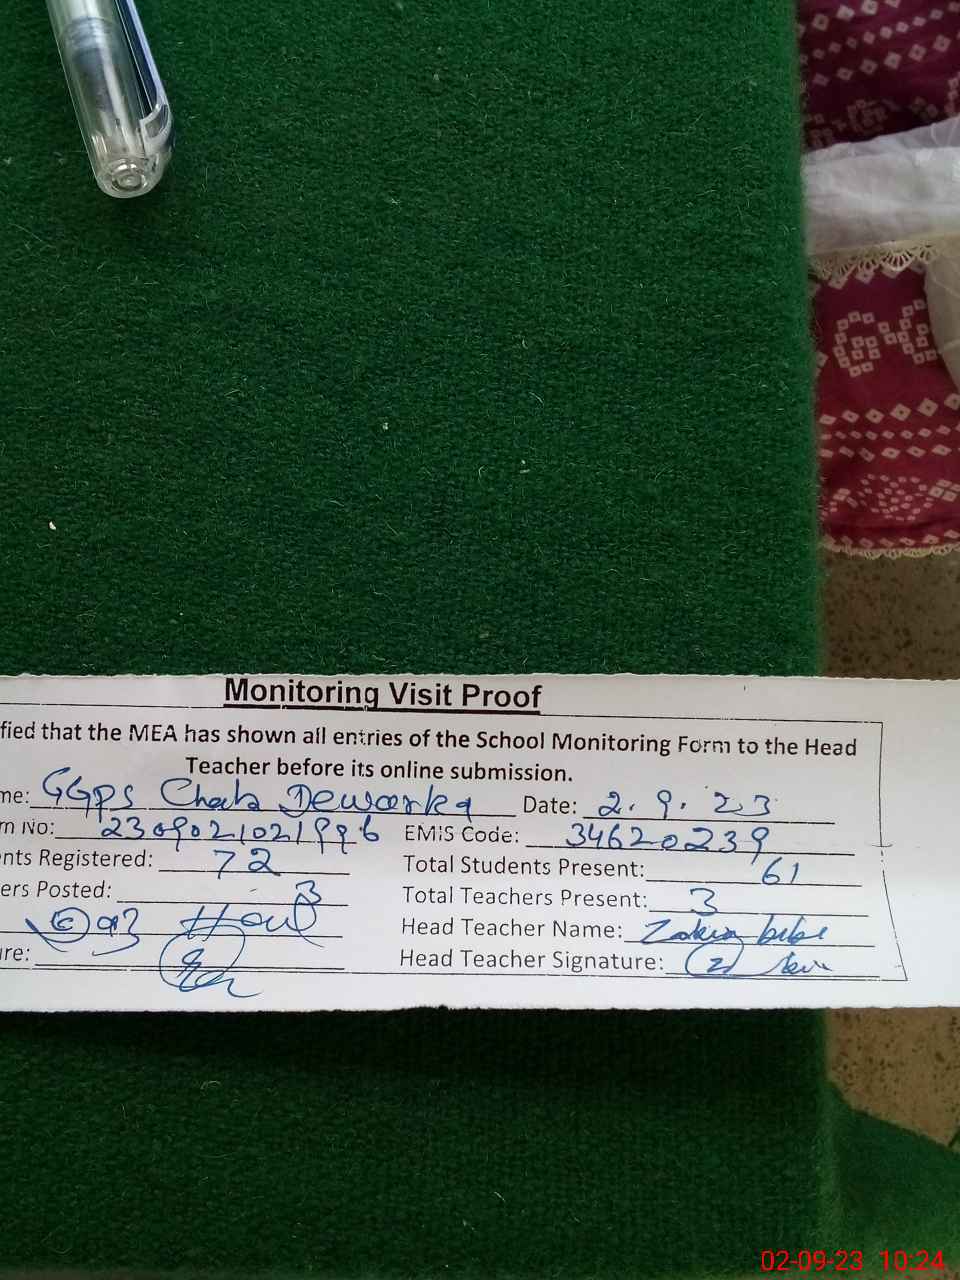 Monitoring Visit Proof
fied that the MEA has shown all entries of the School Monitoring Form to the Head
Teacher before its online submission.
me: GGPS Chak Dewarka Date: 2.9.23
m No: 2309021021996 EMIS Code: 34620239
nts Registered: 72 Total Students Present: 61
ers Posted: 3 Total Teachers Present: 3
Head Teacher Name: bibi
ure: Head Teacher Signature:
02-09-23 10:24